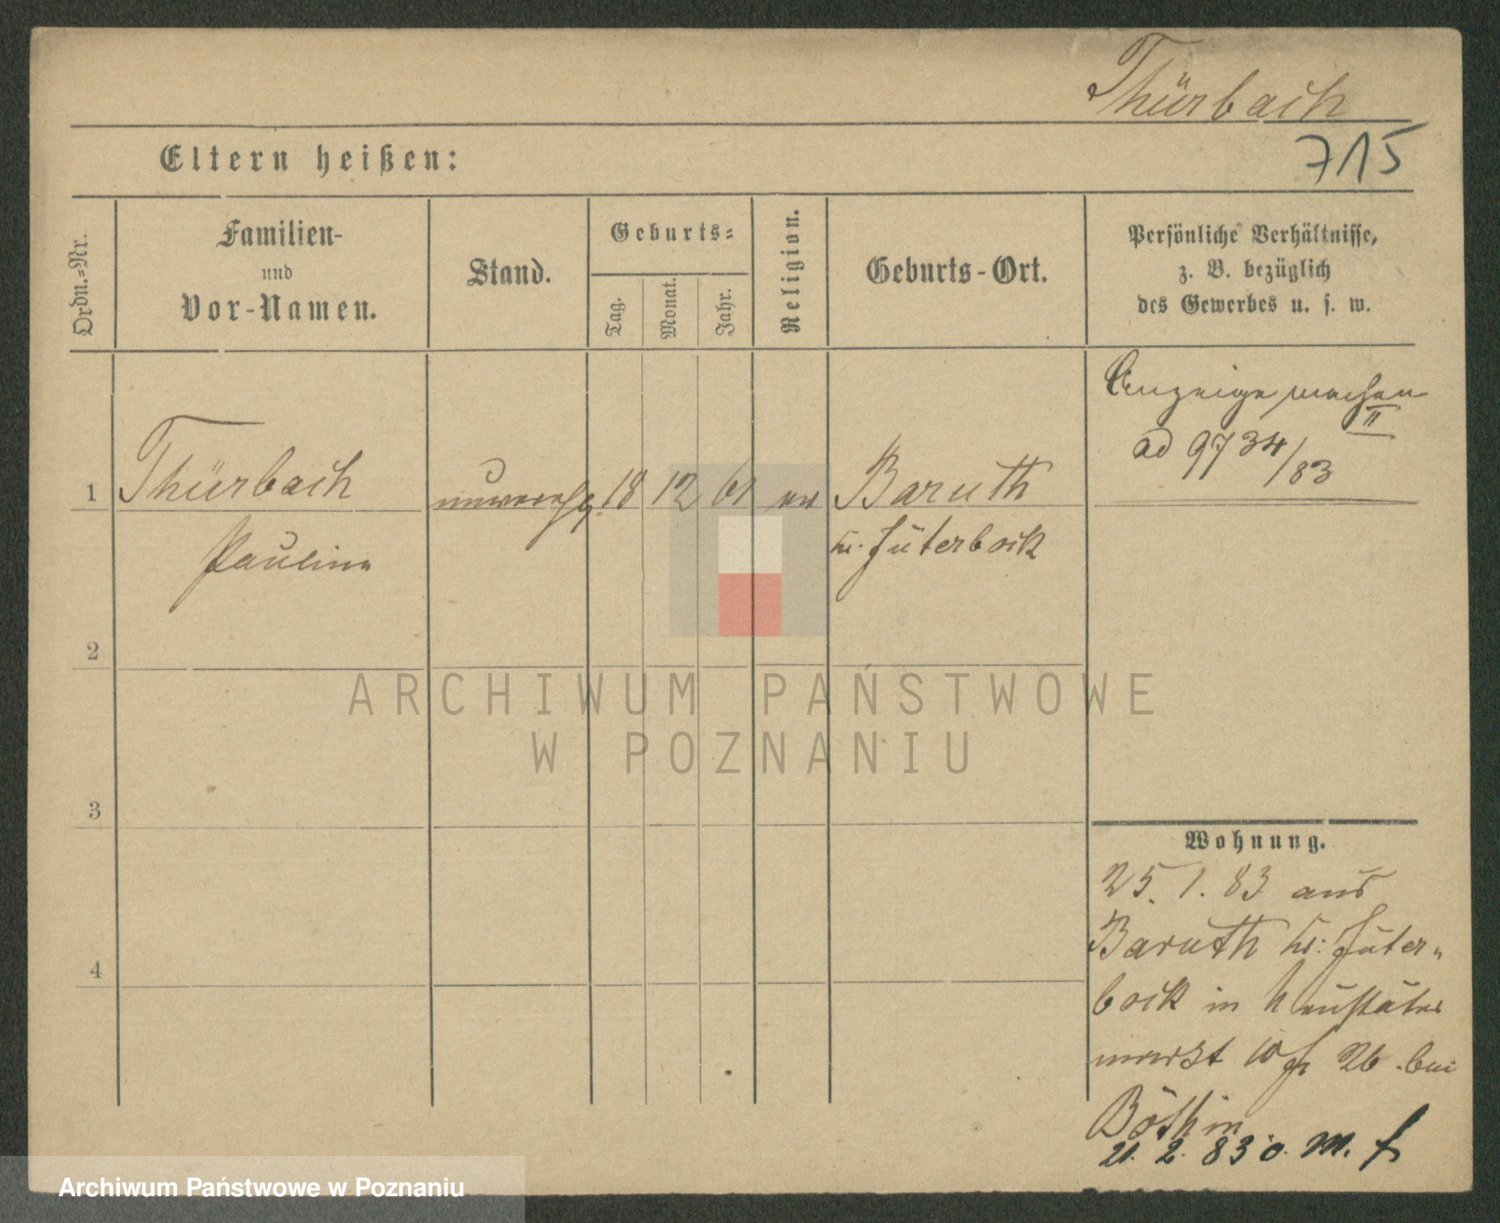 Thürbach
715
Eltern heißen:
Ordn.-Nr.
Familien-
und
Vor-Namen.
Stand.
Geburts-
Tag.
Monat.
Jahr.
Religion.
Geburts-Ort.
Persönliche Verhältnisse,
z. B. bezüglich
des Gewerbes u. s. w.
Anzeige machen
II
ad 9734/83
1 Thürbach unvereh. 18 12 61 ev Baruth
Pauline Kr. Jüterbock
2
3
4
Wohnung.
25. 1. 83 aus
Baruth Kr: Jüter-
bock in Neustädter
markt 10 26 bei
21. 2. 83 o. M. f
ARCHIWUM PAŃSTWOWE
W POZNANIU
Archiwum Państwowe w Poznaniu